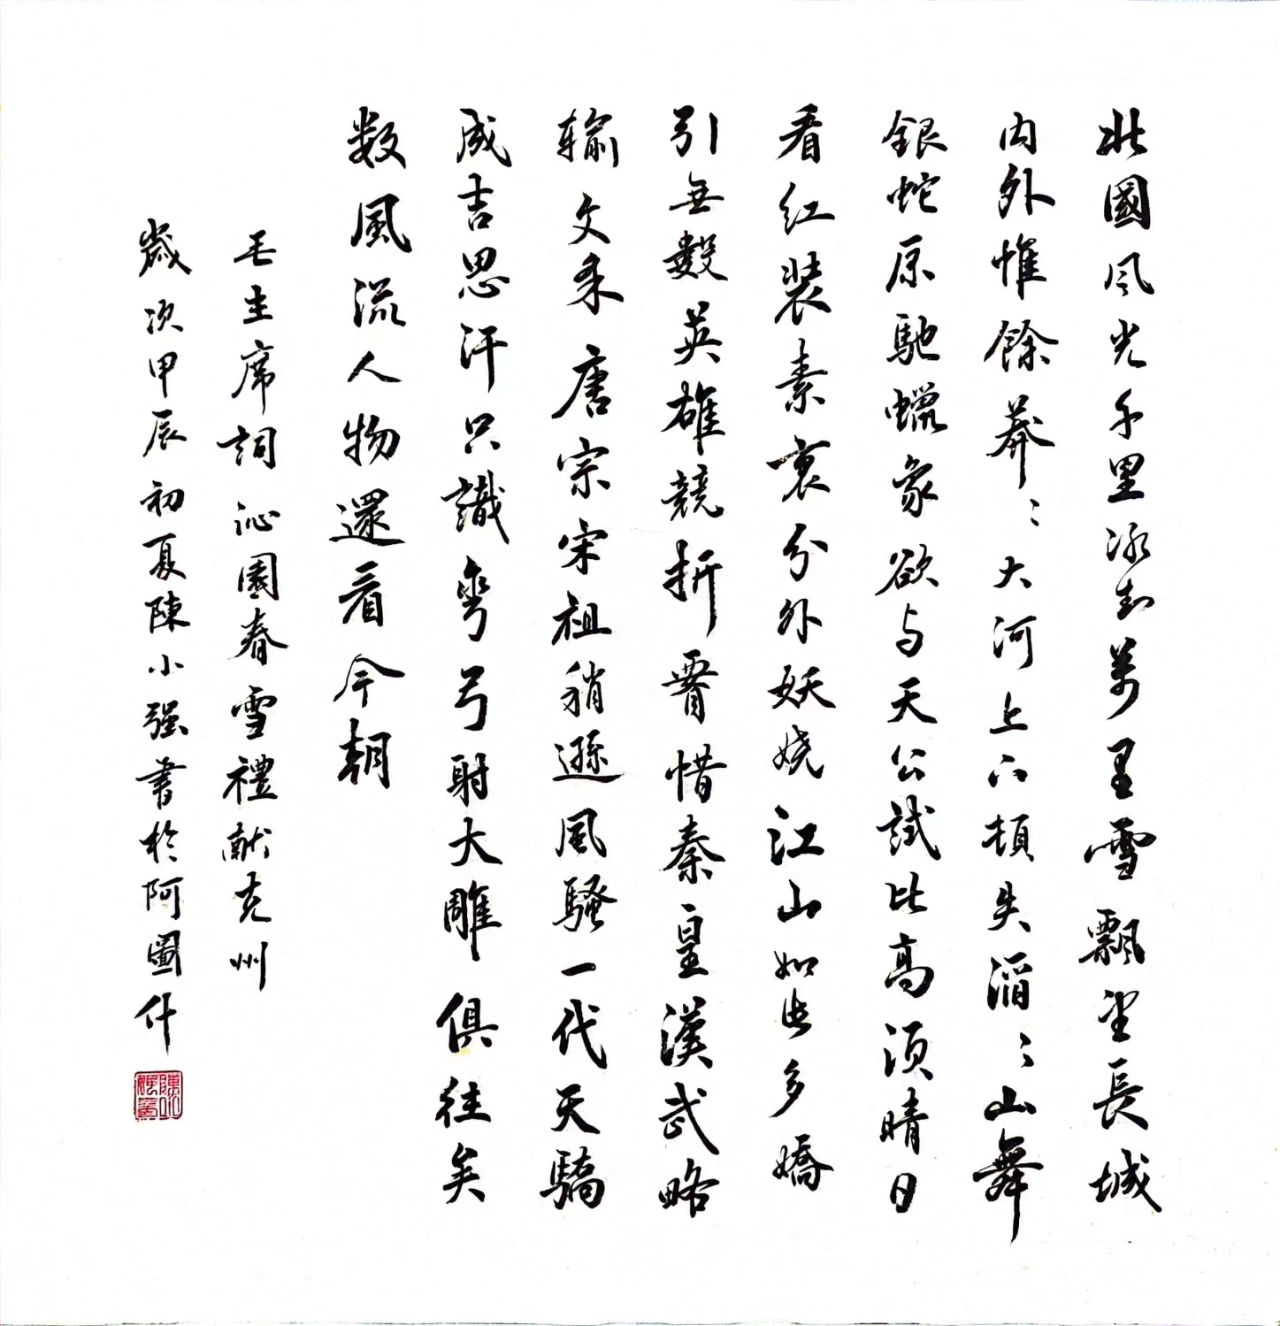 北國风光千里冰封萬里雪飄望長城
内外惟餘莽〻大河上下頓失滔〻山舞
銀蛇原馳蠟象欲与天公試比高须晴日
看红装素裹分外妖娆江山如此多嬌
引無數英雄競折腰惜秦皇漢武略
输文采唐宗宋祖稍遜風騷一代天驕
成吉思汗只識彎弓射大雕俱往矣
数風流人物還看今朝
毛主席詞沁園春雪禮献克州
歲次甲辰初夏陳小强書於阿圖什